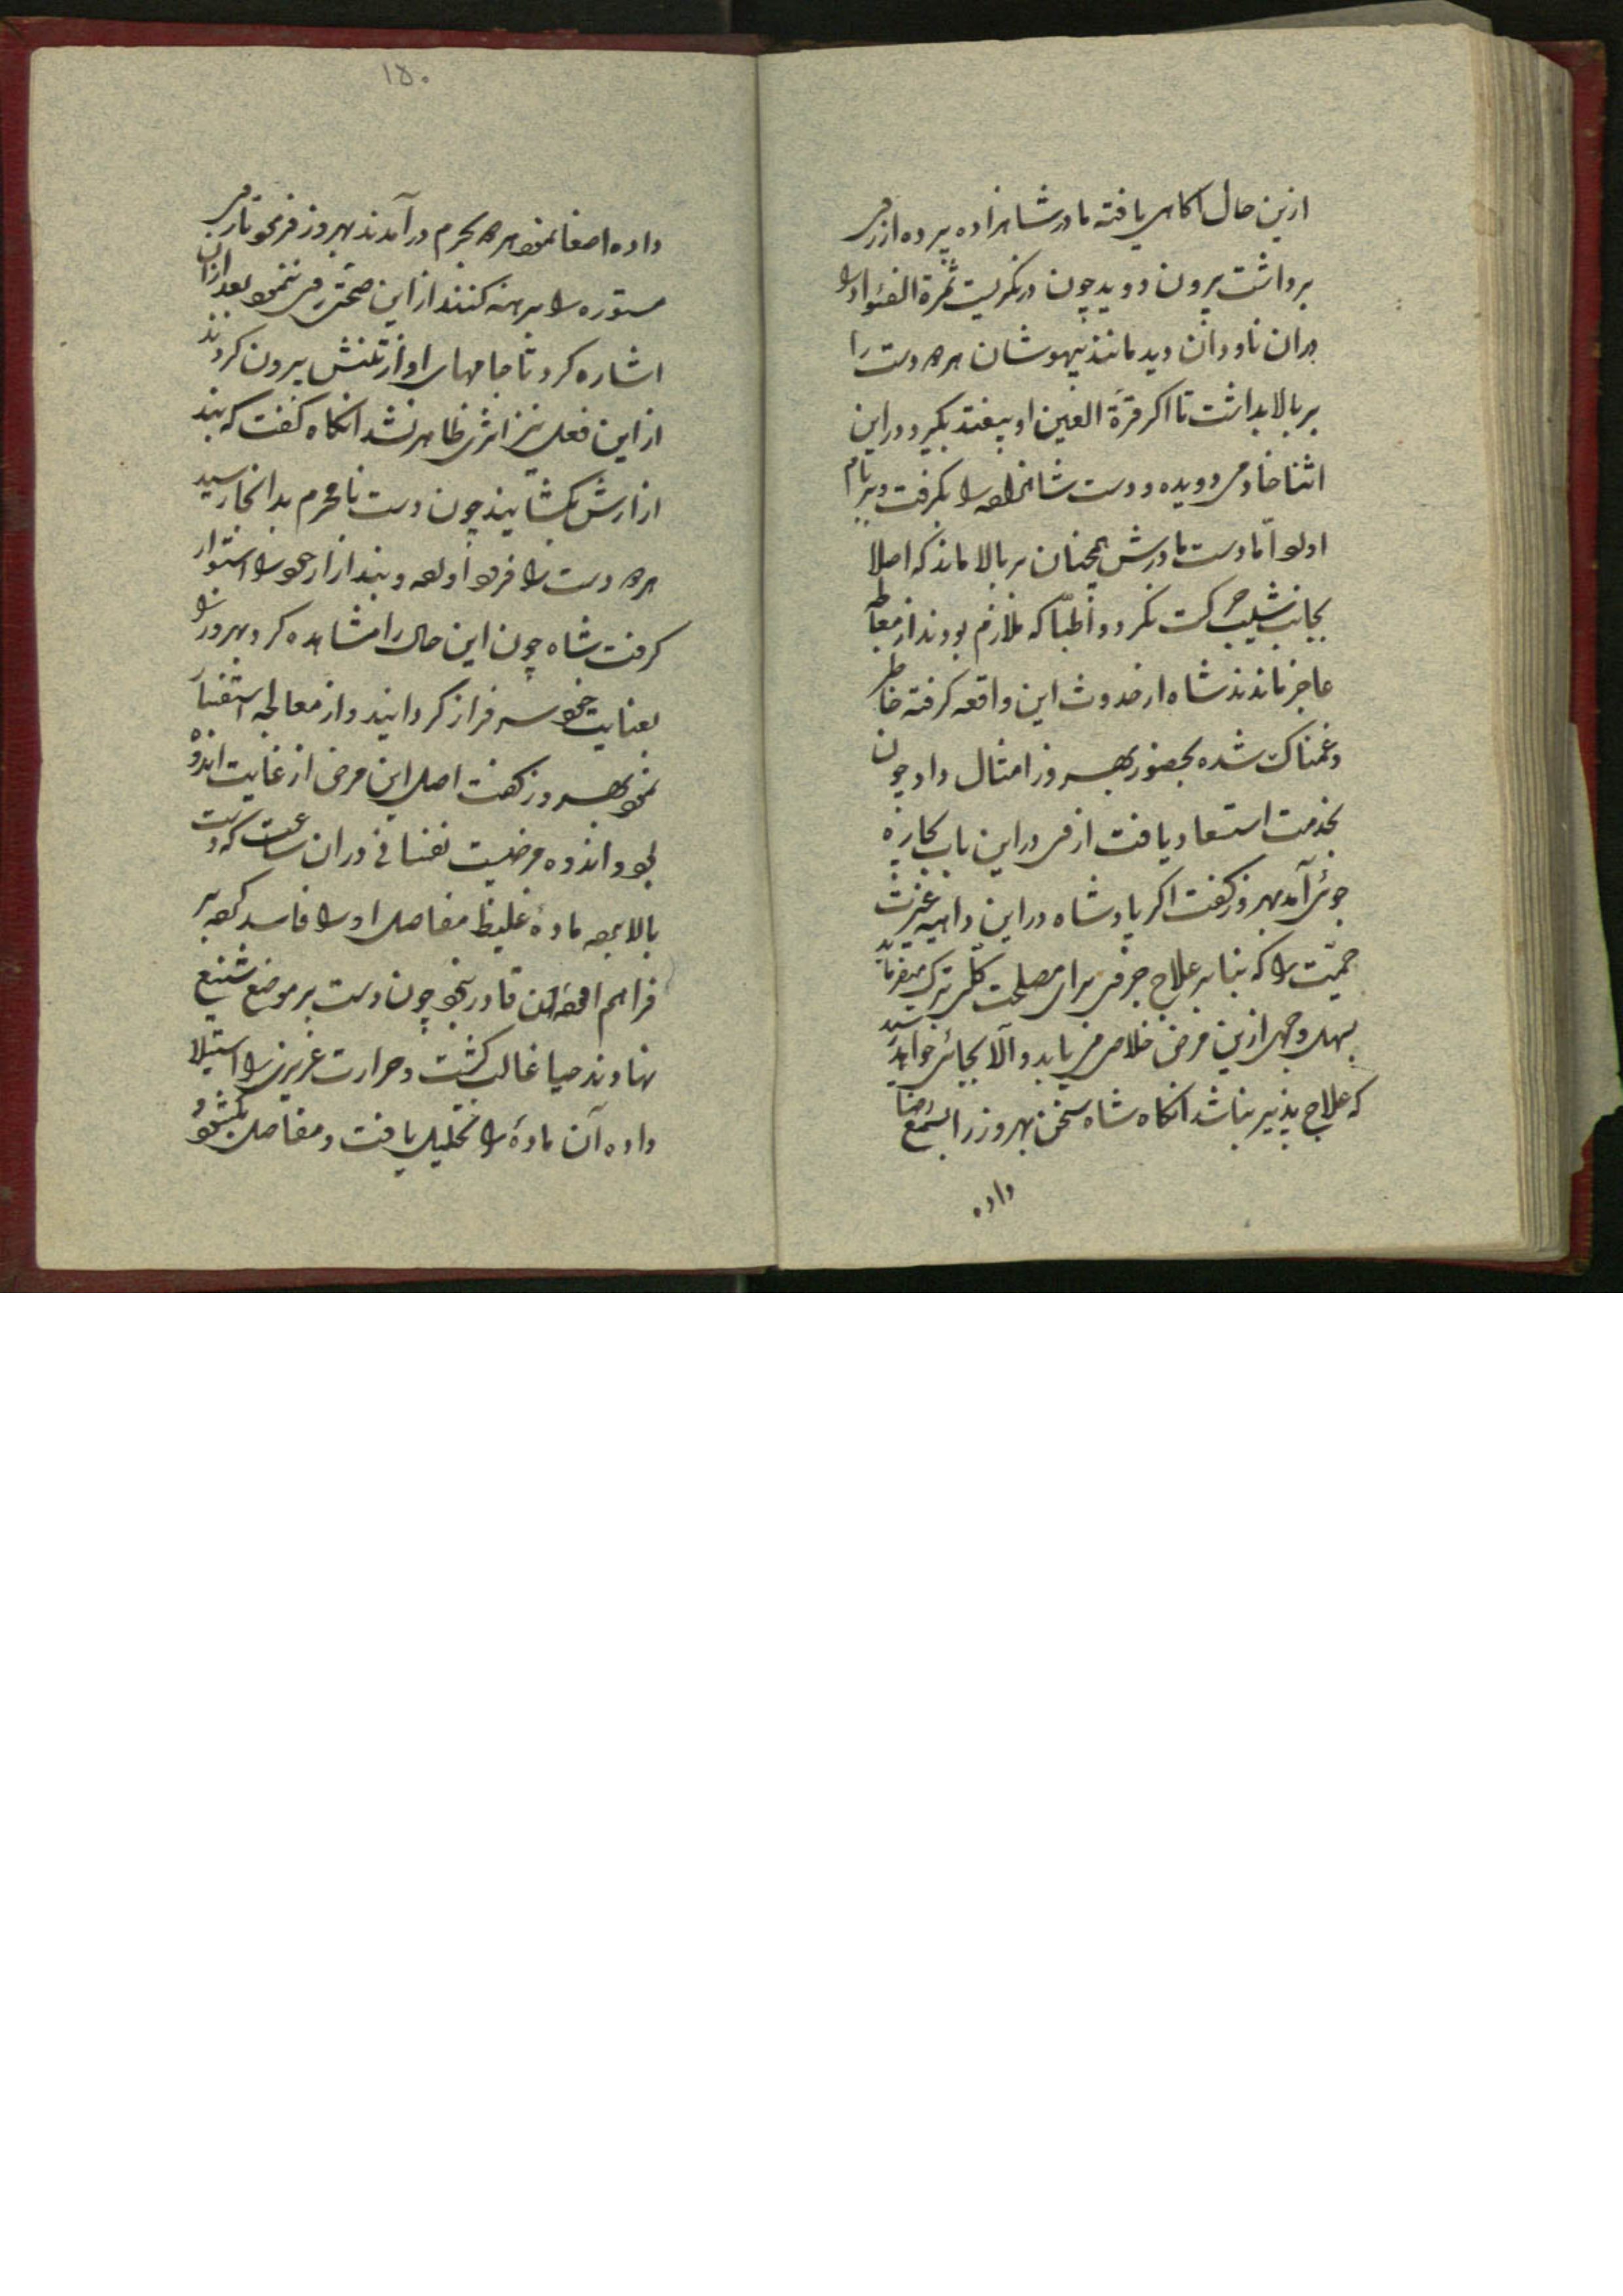 ازین حال اکاهی یافته مادر شاهزاده پرده از روی
برداشت بیرون دوید چون درنکریست ثمرة الفئواد را
بران ناودان دید مانند بیهوشان هر دو دست را
بر بالا بداشت تا اکر قرة العین او بیفتد بکیرد دراین
اثنا خادمی دویده و دست شاهزاده را بکرفت و بر بام
اورد اما دست مادرش همچنان بر بالا ماند که اصلا
بجانب شیب حرکت نکرد و اطبا که ملازم بودند از معالجه
عاجز ماندند شاه از حدوث این واقعه کرفته خاطر
و غمناک شده بحضور بهروز امثال داد چون
بخدمت استعاد یافت از وی دراین باب بچاره
جوئی آمد بهروز کفت اکر پادشاه دراین داهیه غیرت
حمیت را که بنابر علاج جزوی برای مصلحت کلی ترک میفرماید
بسهل وجهی ازین مرض خلاص می یابد و آلا بجائی خواهد رسید
که علاج پذیر نباشد انکاه شاه سخن بهروز را بسمع رضا
داده
۱۵۰
داده اصغا نمود هر دو بحرم درآمدند بهروز فرمود تا روی
مستوره را برهنه کنند از این صحتی روی ننمود بعد ازان
اشاره کرد تا جامهای او از تنش بیرون کردند
از این فعل نیز اثری ظاهر نشد انکاه کفت که بند
ازارش بکشایند چون دست نامحرم بدانجا رسید
هر دو دست را فرود اورده و بند ازار خود را استوار
کرفت شاه چون این حال را مشاهده کرد بهروز را
بعنایت خود سرفراز کردانید و از معالجه استفسار
نمود بهروز کفت اصل این مرض از غایت اندوه
بود و اندوه مرضیست نفسانی دران ساعت که دست
بالا بوده ماده غلیظ مفاصل او را فاسد کرده بر
فراهم اوردن قادر نبود چون دست بر موضع شنیع
نهادند حیا غالب کشت و حرارت غریزی را استیلا
داده آن ماده را تحلیل یافت و مفاصل بکشود